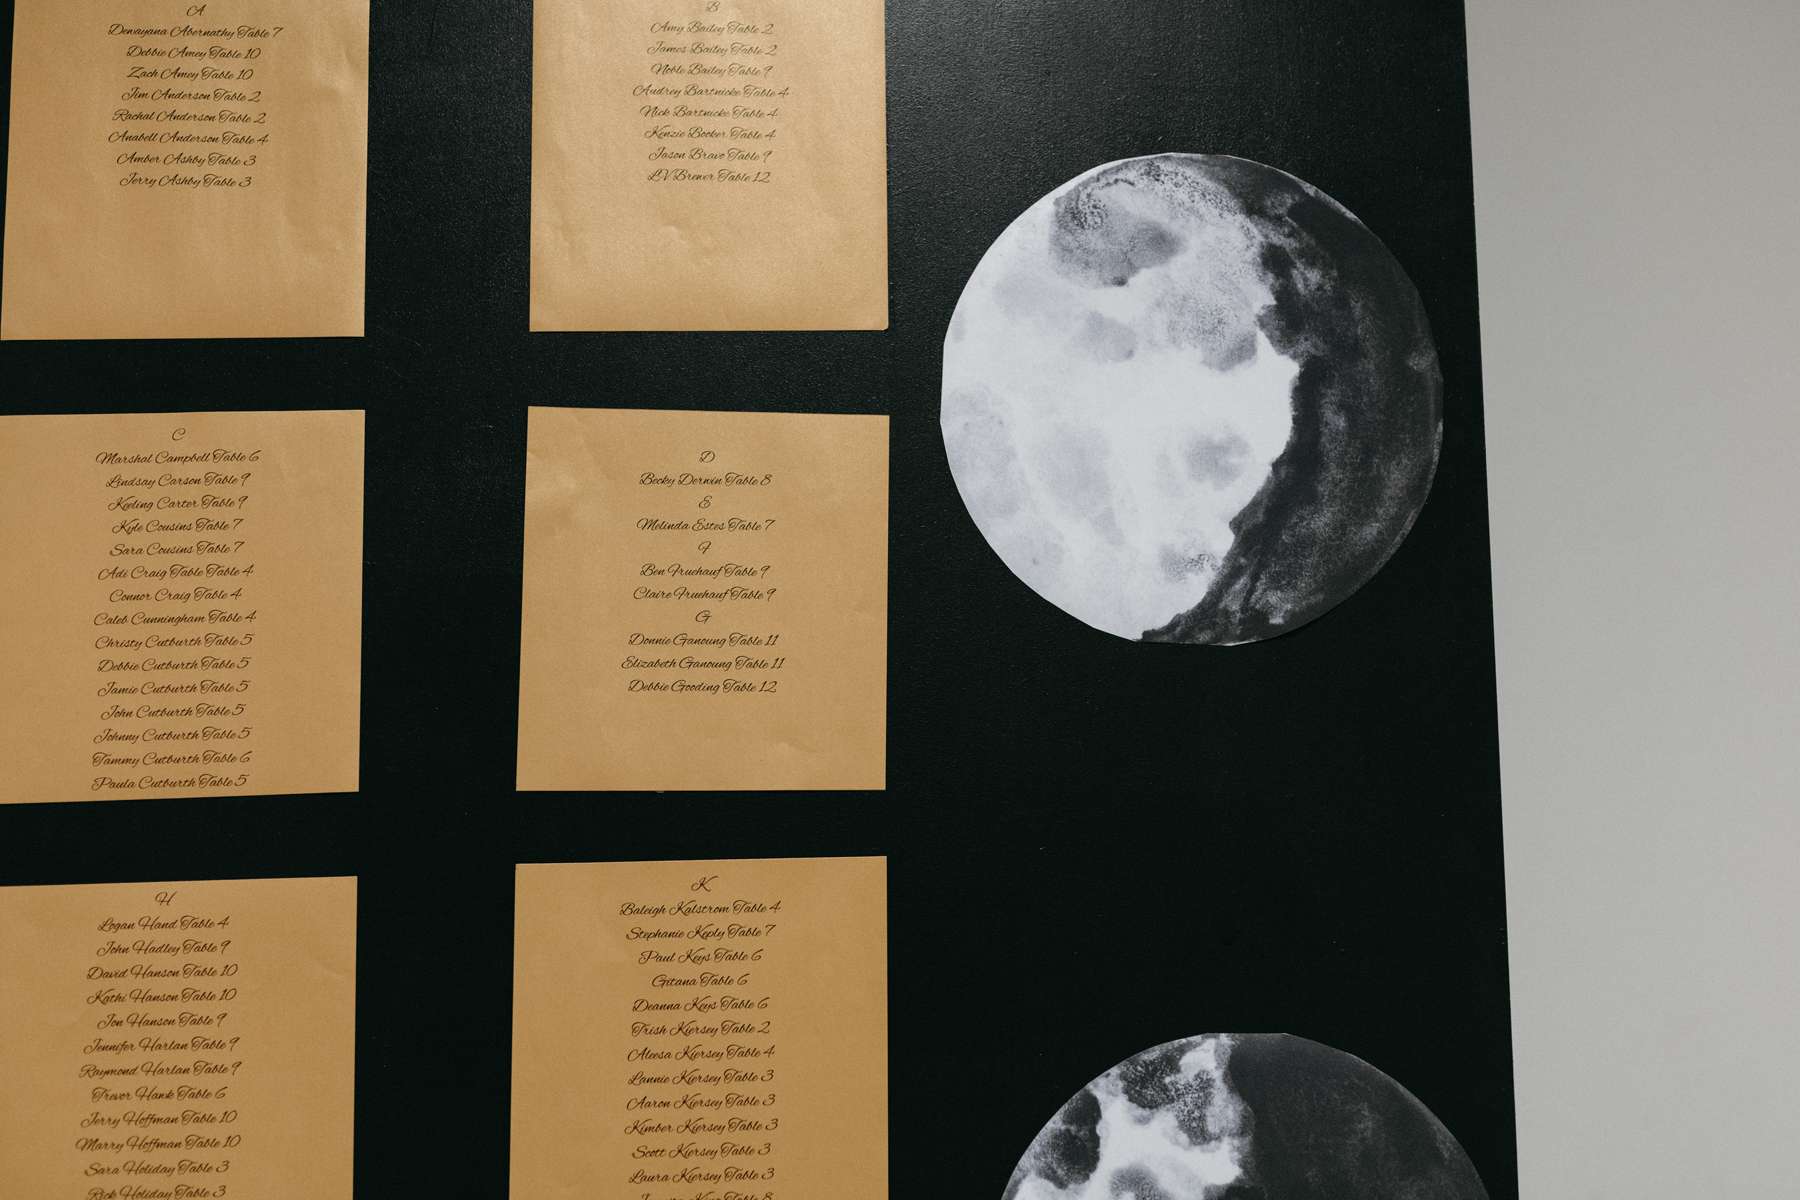 A
Dewayana Abernathy Table 7
Debbie Amey Table 10
Zach Amey Table 10
Jim Anderson Table 2
Rachal Anderson Table 2
Anabell Anderson Table 4
Amber Ashby Table 3
Jerry Ashby Table 3
B
Amy Bailey Table 2
James Bailey Table 2
Noble Bailey Table 9
Audrey Bartnicke Table 4
Nick Bartnicke Table 4
Kenzie Booker Table 4
Jason Bravo Table 9
LV Brewer Table 12
C
Marshal Campbell Table 6
Lindsay Carson Table 9
Keeling Carter Table 9
Kyle Cousins Table 7
Sara Cousins Table 7
Adi Craig Table Table 4
Connor Craig Table 4
Caleb Cunningham Table 4
Christy Cutburth Table 5
Debbie Cutburth Table 5
Jamie Cutburth Table 5
John Cutburth Table 5
Johnny Cutburth Table 5
Tammy Cutburth Table 6
Paula Cutburth Table 5
D
Becky Derwin Table 8
E
Melinda Estes Table 7
F
Ben Fruehauf Table 9
Claire Fruehauf Table 9
G
Donnie Ganoung Table 11
Elizabeth Ganoung Table 11
Debbie Gooding Table 12
H
Logan Hand Table 4
John Hadley Table 9
David Hanson Table 10
Kathi Hanson Table 10
Jon Hanson Table 9
Jennifer Harlan Table 9
Raymond Harlan Table 9
Trevor Hank Table 6
Jerry Hoffman Table 10
Marry Hoffman Table 10
Sara Holiday Table 3
Rick Holiday Table 3
K
Baleigh Kalstrom Table 4
Stephanie Keply Table 7
Paul Keys Table 6
Gitana Table 6
Deanna Keys Table 6
Trish Kiersey Table 2
Aleesa Kiersey Table 4
Lannie Kiersey Table 3
Aaron Kiersey Table 3
Kimber Kiersey Table 3
Scott Kiersey Table 3
Laura Kiersey Table 3
Table 8